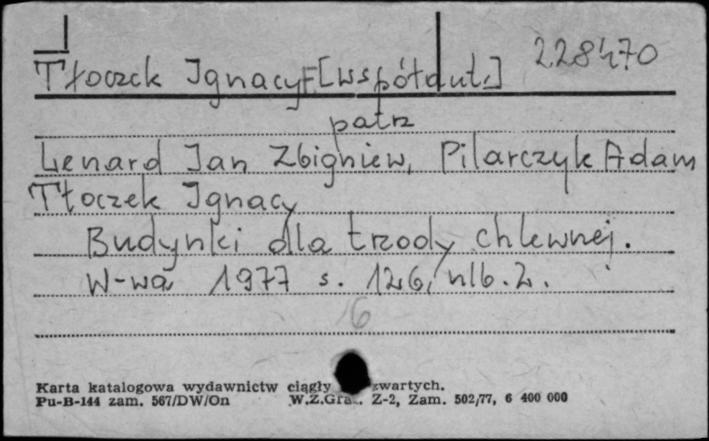 228470
Tłoczek Ignacy [współaut.]
patrz
Lenard Jan Zbigniew, Pilarczyk Adam
Tłoczek Ignacy
Budynki dla trzody chlewnej.
W-wa 1977 s. 126, nlb. 2.
6
Karta katalogowa wydawnictw ciągły zwartych.
Pu-B-144 zam. 567/DW/On W.Z.Graf. Z-2, Zam. 502/77, 6 400 000